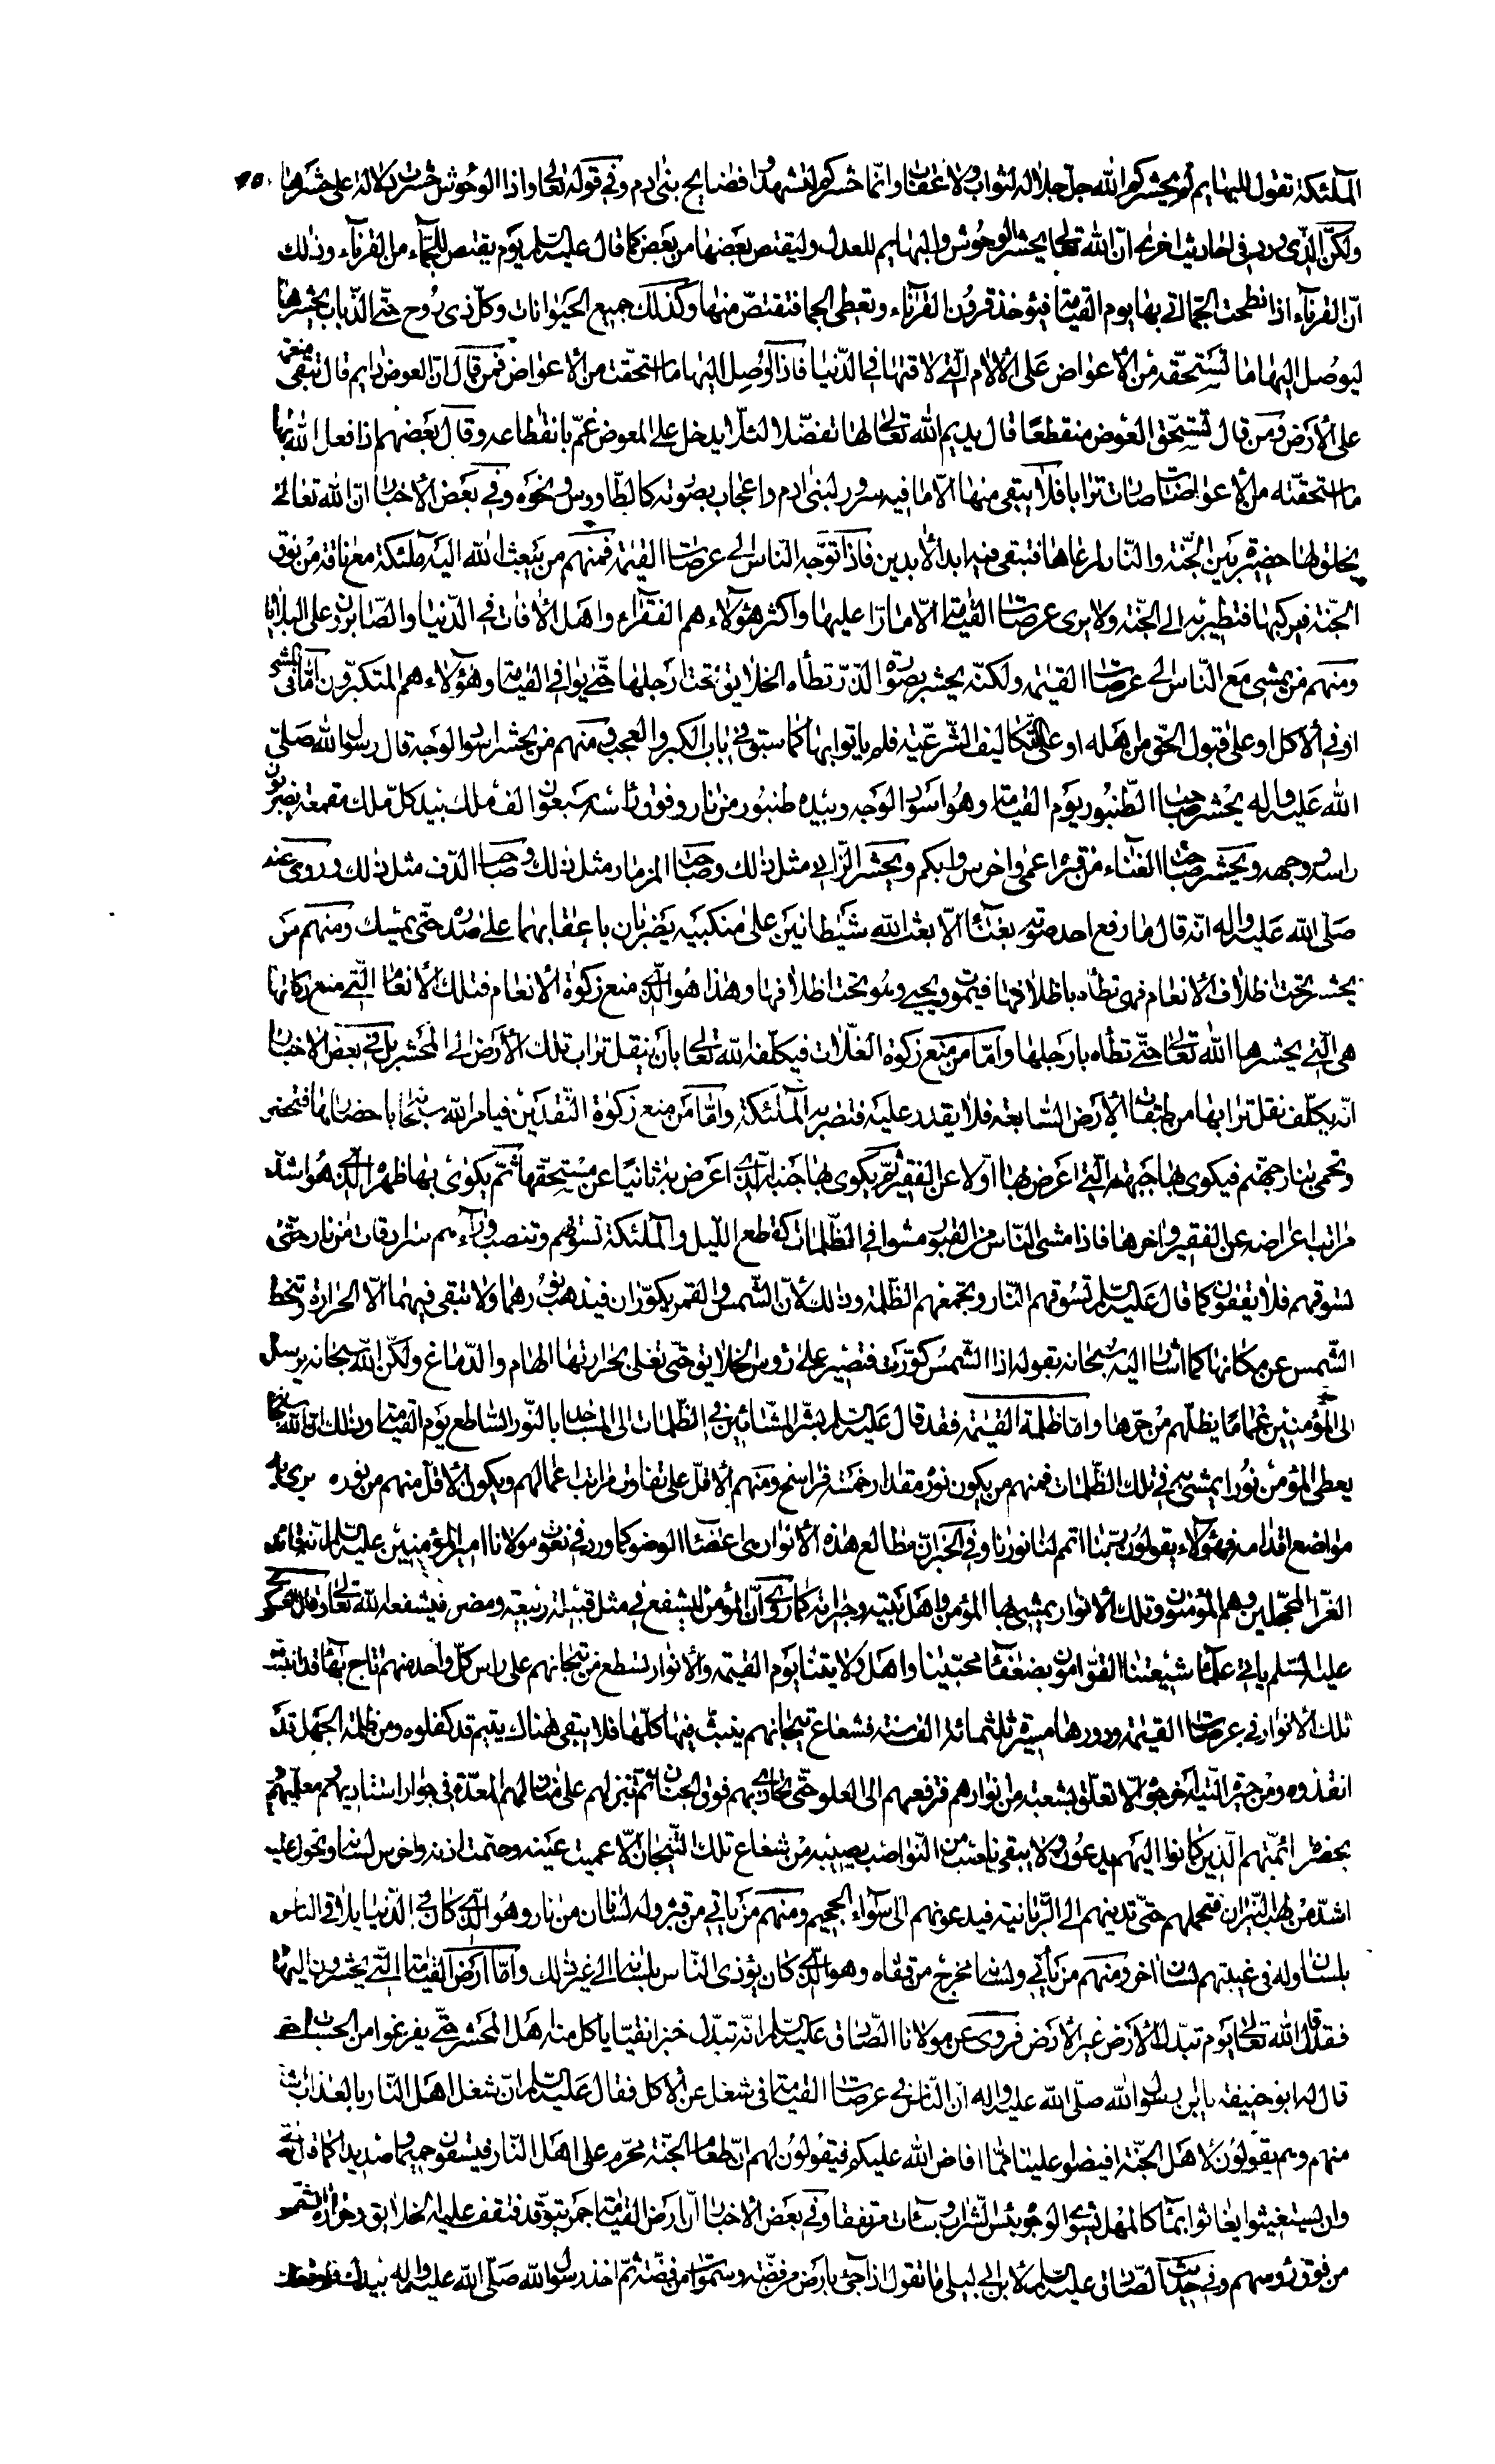 الملئكة تقول للبهايم لم يحشركم الله جل جلاله لثواب ولا عقاب وانما حشركم لتشهدوا فضايح بنى ادم وفي قوله تعالى واذا الوحوش حشرت دلالة على حشرها
ولكن الذى ورد في احاديث اخر انه ان الله تعالى يحشر الوحوش والبهايم للعدل وليقتص بعضها من بعض كما قال عليه السلم يوم يقتص للجماء من القرناء وذلك
ان القرناء اذا نطحت الجما اتى بها يوم القيمة فيؤخذ قرون القرناء وتعطى الجما فتقتص منها وكذلك جميع الحيوانات وكل ذى روح حتى الذباب يحشرها
ليوصل اليها ما تستحقه من الأعواض على الألام التي لاقتها في الدنيا فاذا اوصل اليها ما استحقت من الأعواض فمن قال ان العوض دايم قال تبقى منعمة
على الأرض ومن قال تستحق العوض منقطعا قال يديم الله تعالى لها تفضلا لئلا يدخل على المعوض غم بانقطاعه وقال بعضهم اذا فعل الله بها
ما استحقته من الأعواض صارت ترابا فلا يبقى منها الا ما فيه سرور لبنى ادم واعجاب بصوته كالطاووس ونحوه وفي بعض الأخبار ان الله تعالى
يخلق لها حضيرة بين الجنة والنار لمرعاها فتبقى فيه ابد الأبدين فاذا توجه الناس الى عرصات القيمة فمنهم من يبعث الله اليه ملئكة مع ناقة من نوق
الجنة فيركبها فتطير به الى الجنة ولا يرى عرصات القيمة الا مارا عليها واكثر هؤلاء هم الفقراء واهل الأفات في الدنيا والصابرون على البلايا
ومنهم من يمشى مع الناس الى عرصات القيمة ولكنه يحشر بصورة الذر تطأه الخلايق تحت ارجلها حتى يوافي القيمة وهؤلاء هم المتكبرون اما في المشى
او في الأكل او على قبول الحق من اهله او على التكاليف الشرعية فلم ياتوا بها كما سبق في باب الكبر والعجب ومنهم من يحشر اسود الوجه قال رسول الله صلى
الله عليه واله يحشر صاحب الطنبور يوم القيمة وهو اسود الوجه وبيده طنبور من نار وفوق رأسه سبعون الف ملك بيد كل ملك مقمعة يضربون
راسه ووجهه ويحشر صاحب الغناء من قبره اعمى واخرس وابكم ويحشر الزانى مثل ذلك وصاحب المزمار مثل ذلك وصاحب الدف مثل ذلك وروى عنه
صلى الله عليه واله انه قال ما رفع احد صوته بغناء الا بعث الله شيطانين على منكبيه يضربان باعقابهما على صدره حتى يمسك ومنهم من
يحشر تحت اظلاف الأنعام فهى تطأه باظلافها فيموت ويحيى ويموت تحت اظلافها وهذا هو الذي منع زكوة الأنعام فتلك الأنعام التي منع زكاتها
هى التي يحشرها الله تعالى حتى تطأه بارجلها واما من منع زكوة الغلات فيكلفه الله تعالى بان ينقل تراب تلك الأرض الى المحشر بل في بعض الأخبار
انه يكلف نقل ترابها من طبقات الأرض السابعة فلا يقدر عليه فتضربه الملئكة واما من منع زكوة النقدين فيامر الله سبحانه باحضارها فتحضر
وتحمى بنار جهنم فيكوى بها جبهته التي اعرض بها اولا عن الفقير ثم يكوى بها جنبه الذي اعرض به ثانيا عن مستحقها ثم يكوى بها ظهره الذي هو اشد
مراتب اعراضه عن الفقير واخرها فاذا مشى الناس من القبور مشوا في الظلمات كقطع الليل والملئكة تسوقهم وتنصب وراءهم سرادقات من نار حتى
تسوقهم فلا يقفون كما قال عليه السلم تسوقهم النار وتجمعهم الظلمة وذلك لأن الشمس والقمر يكوران فيذهب نورهما ولا تبقى فيهما الا الحرارة وتنحط
الشمس عن مكانها كما اشار اليه سبحانه بقوله اذا الشمس كورت فتصير على رؤس الخلايق حتى تغلى بحرارتها الهام والدماغ ولكن الله سبحانه يرسل
الى المؤمنين غماما يظلهم من حرها واما ظلمة القيمة فقد قال عليه السلم بشر المشائين في الظلمات الى المساجد بالنور الساطع يوم القيمة وذلك ان الله سبحانه
يعطى المؤمن نورا يمشى به في تلك الظلمات فمنهم من يكون نوره مقدار خمسة فراسخ ومنهم الأقل على تفاوت مراتب اعمالهم ويكون الأقل منهم من نوره يرى به
مواضع اقدامه فهؤلاء يقولون ربنا اتمم لنا نورنا وفي الخبر ان مطالع هذه الأنوار هى اعضاء الوضو كما ورد في نعوت مولانا امير المؤمنين عليه السلم انه قائد
الغر المحجلين وهم المؤمنون وتلك الأنوار يمشى بها المؤمن واهل بيته وجيرانه كما روى ان المؤمن ليشفع في مثل قبيلة ربيعة ومضر فيشفعه الله تعالى وقال العسكرى
عليه السلم ياتي علماء شيعتنا القوامون بضعفاء محبينا واهل ولايتنا يوم القيمة والأنوار تسطع من تيجانهم على راس كل واحد منهم تاج بهاء قد انبثت
تلك الأنوار في عرصات القيمة ودورها مسيرة ثلثمائة الف سنة فشعاع تيجانهم ينبث فيها كلها فلا يبقى هناك يتيم قد كفلوه ومن ظلمة الجهل قد
انقذوه ومن حيرة التيه اخرجوه الا تعلق بشعبة من انوارهم فترفعهم الى العلو حتى تحاذى بهم فوق الجنان ثم تنزلهم على منازلهم المعدة في جوار استاديهم ومعلميهم
بحضرة ائمتهم الذين كانوا اليهم يدعون ولا يبقى ناصب من النواصب يصيبه من شعاع تلك التيجان الا عميت عينه وصمت اذنه واخرس لسانه وتحول عليه
اشد من لهب النيران فتحملهم حتى تدفعهم الى الزبانية فيدعونهم الى سواء الجحيم ومنهم من ياتي من قبره وله لسانان من نار وهو الذي كان في الدنيا يلاقى الناس
بلسان وله في غيبتهم لسان اخر ومنهم من يأتي ولسانه يخرج من قفاه وهو الذي كان يؤذى الناس بلسانه الى غير ذلك واما ارض القيمة التي يحشرون اليها
فقد قال الله تعالى يوم تبدل الأرض غير الأرض فروى عن مولانا الصادق عليه السلم انه تبدل خبزا نقيا ياكل منه اهل المحشر حتى يفرغوا من الحساب
قال له ابو حنيفة يا ابن رسول الله صلى الله عليه واله ان الناس في عرصات القيمة في شغل عن الأكل فقال عليه السلم ان شغل اهل النار بالعذاب اشد
منهم وهم يقولون لأهل الجنة افيضوا علينا مما افاض الله عليكم فيقولون لهم ان طعام الجنة محرم على اهل النار فيسقون حميما وصديدا كما قال تعالى
وان يستغيثوا يغاثوا بماء كالمهل يشوى الوجوه بئس الشراب وسائت مرتفقا وفي بعض الأخبار ان ارض القيمة جمر يتوقد فتقف عليه الخلايق وحرارة الشمس
من فوق رؤسهم وفي حديث الصادق عليه السلم لابن ابي ليلى ما تقول اذا جئ بارض من فضة وسموات من فضة ثم اخذ رسول الله صلى الله عليه واله بيدك